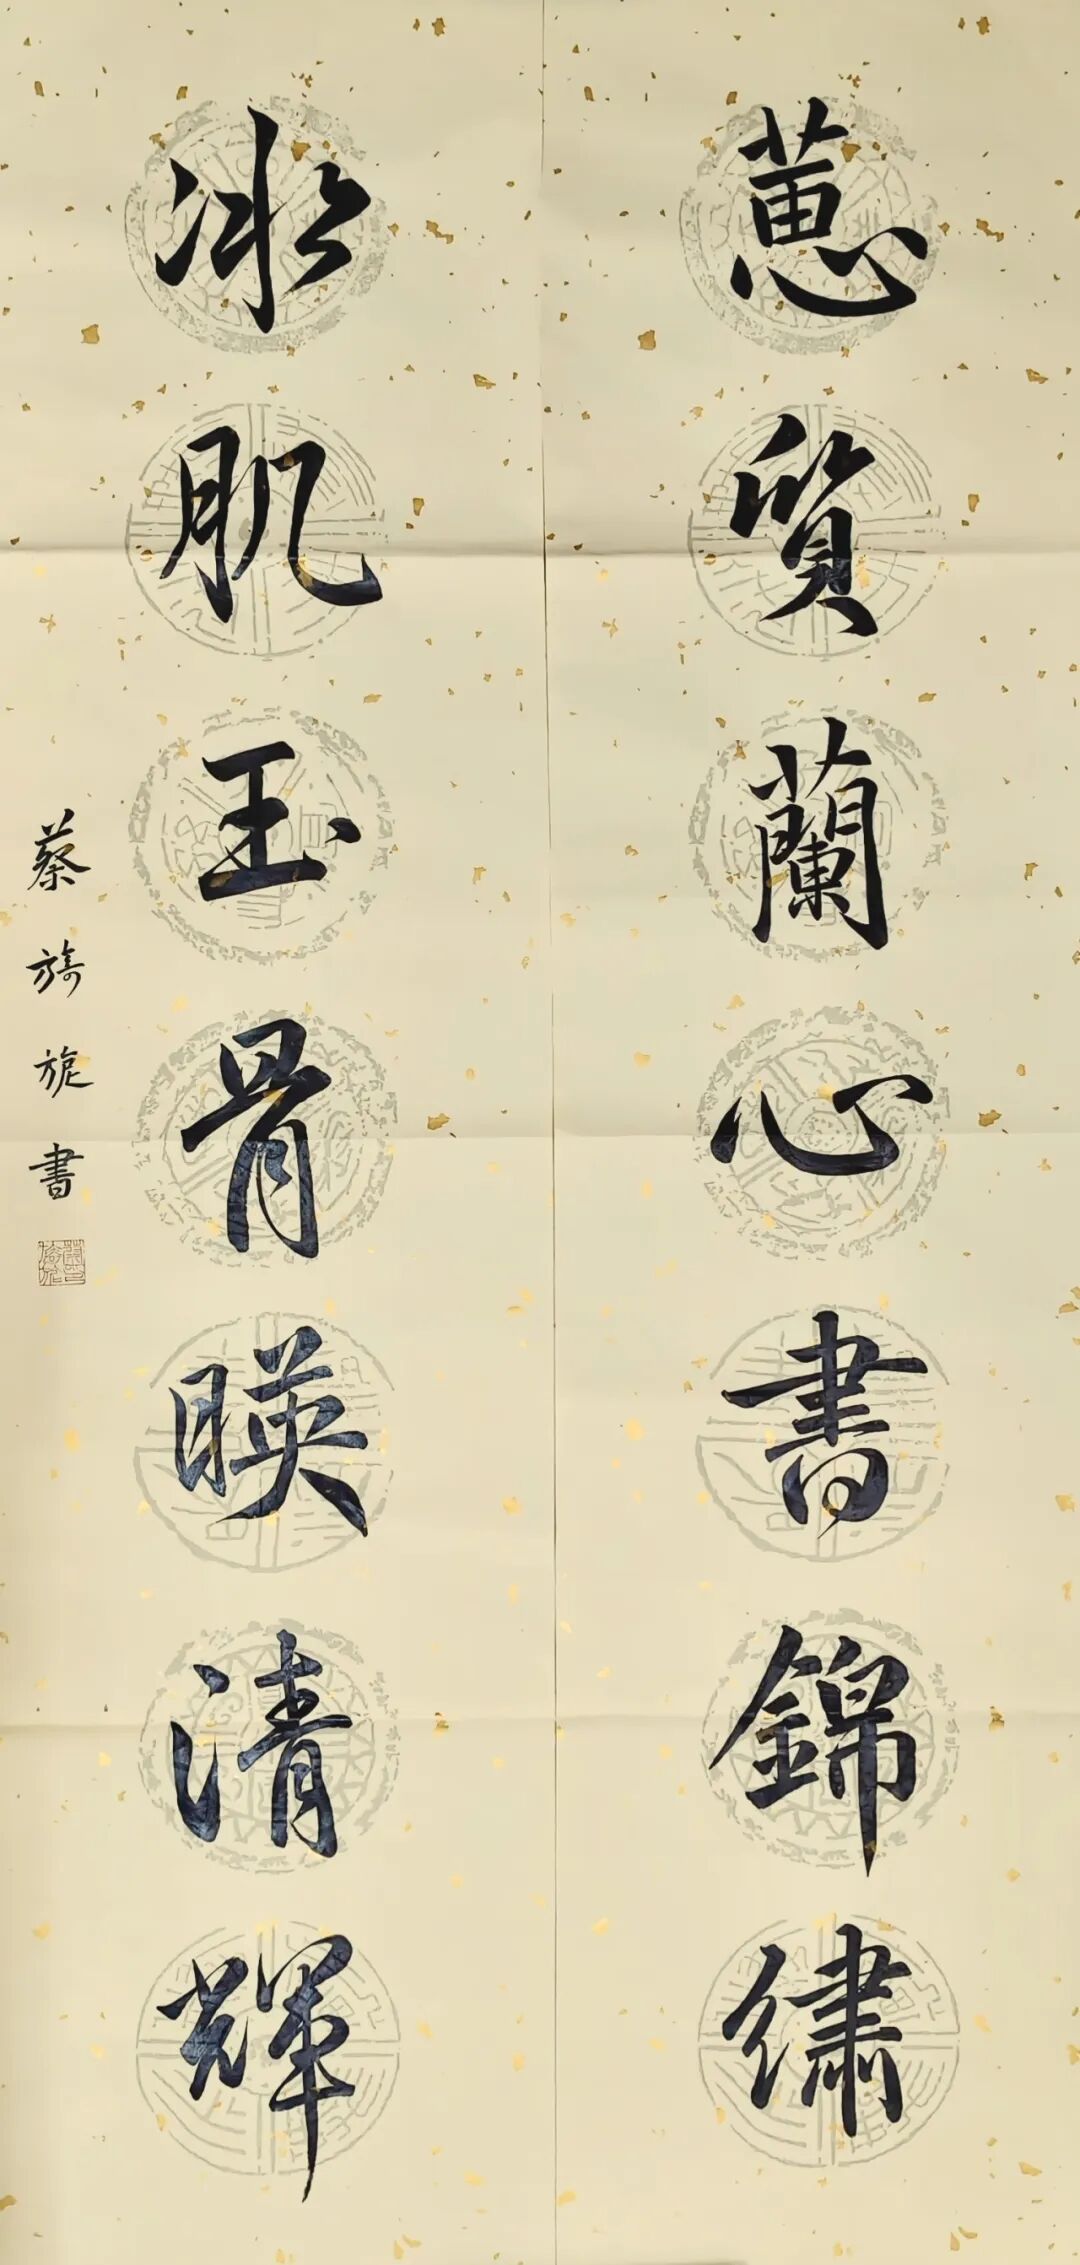 蕙質蘭心書錦繡
冰肌玉骨暎清輝
蔡旖旎書